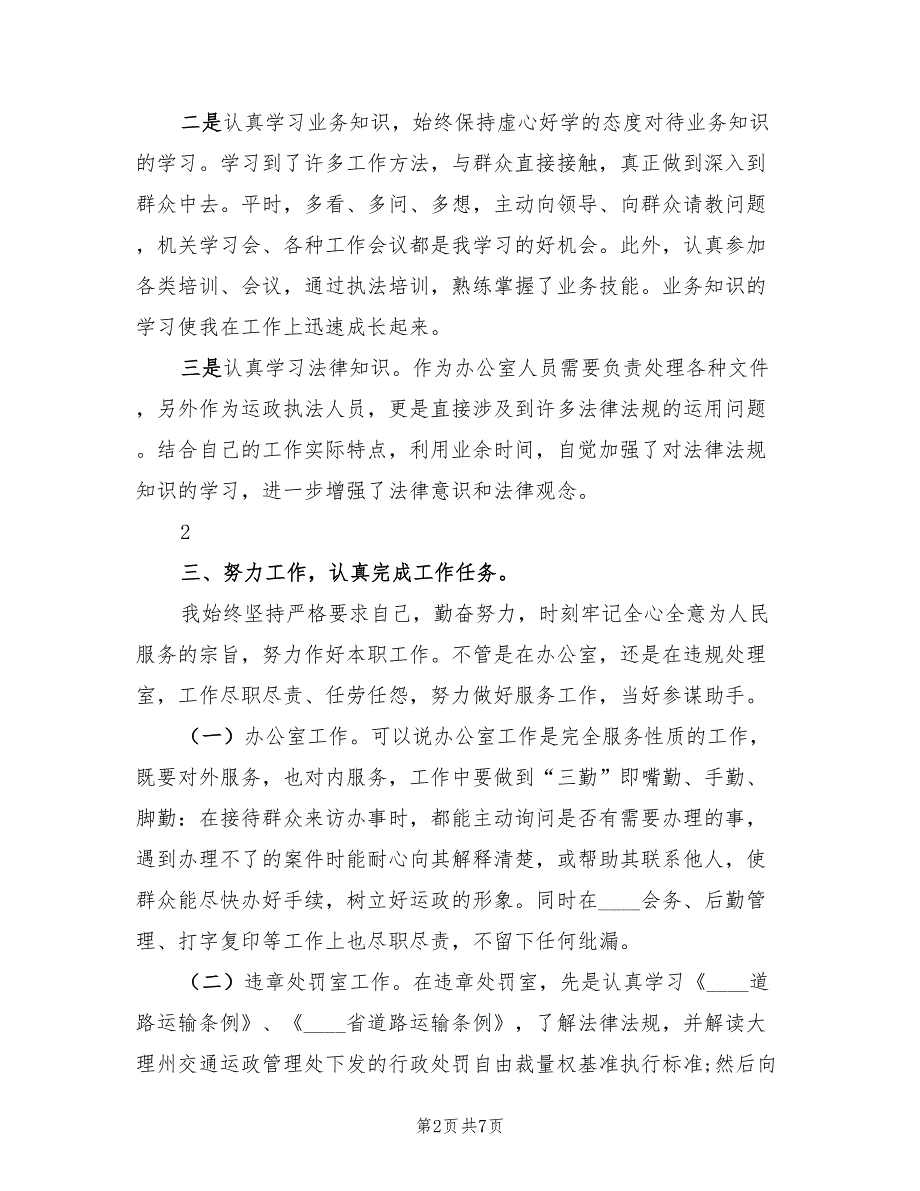 二是认真学习业务知识，始终保持虚心好学的态度对待业务知识
的学习。学习到了许多工作方法，与群众直接接触，真正做到深入到
群众中去。平时，多看、多问、多想，主动向领导、向群众请教问题
，机关学习会、各种工作会议都是我学习的好机会。此外，认真参加
各类培训、会议，通过执法培训，熟练掌握了业务技能。业务知识的
学习使我在工作上迅速成长起来。
三是认真学习法律知识。作为办公室人员需要负责处理各种文件
，另外作为运政执法人员，更是直接涉及到许多法律法规的运用问题
。结合自己的工作实际特点，利用业余时间，自觉加强了对法律法规
知识的学习，进一步增强了法律意识和法律观念。
2
三、努力工作，认真完成工作任务。
我始终坚持严格要求自己，勤奋努力，时刻牢记全心全意为人民
服务的宗旨，努力作好本职工作。不管是在办公室，还是在违规处理
室，工作尽职尽责、任劳任怨，努力做好服务工作，当好参谋助手。
（一）办公室工作。可以说办公室工作是完全服务性质的工作，
既要对外服务，也对内服务，工作中要做到“三勤”即嘴勤、手勤、
脚勤：在接待群众来访办事时，都能主动询问是否有需要办理的事，
遇到办理不了的案件时能耐心向其解释清楚，或帮助其联系他人，使
群众能尽快办好手续，树立好运政的形象。同时在____会务、后勤管
理、打字复印等工作上也尽职尽责，不留下任何纰漏。
（二）违章处罚室工作。在违章处罚室，先是认真学习《____道
路运输条例》、《____省道路运输条例》，了解法律法规，并解读大
理州交通运政管理处下发的行政处罚自由裁量权基准执行标准;然后向
第2页 共7页